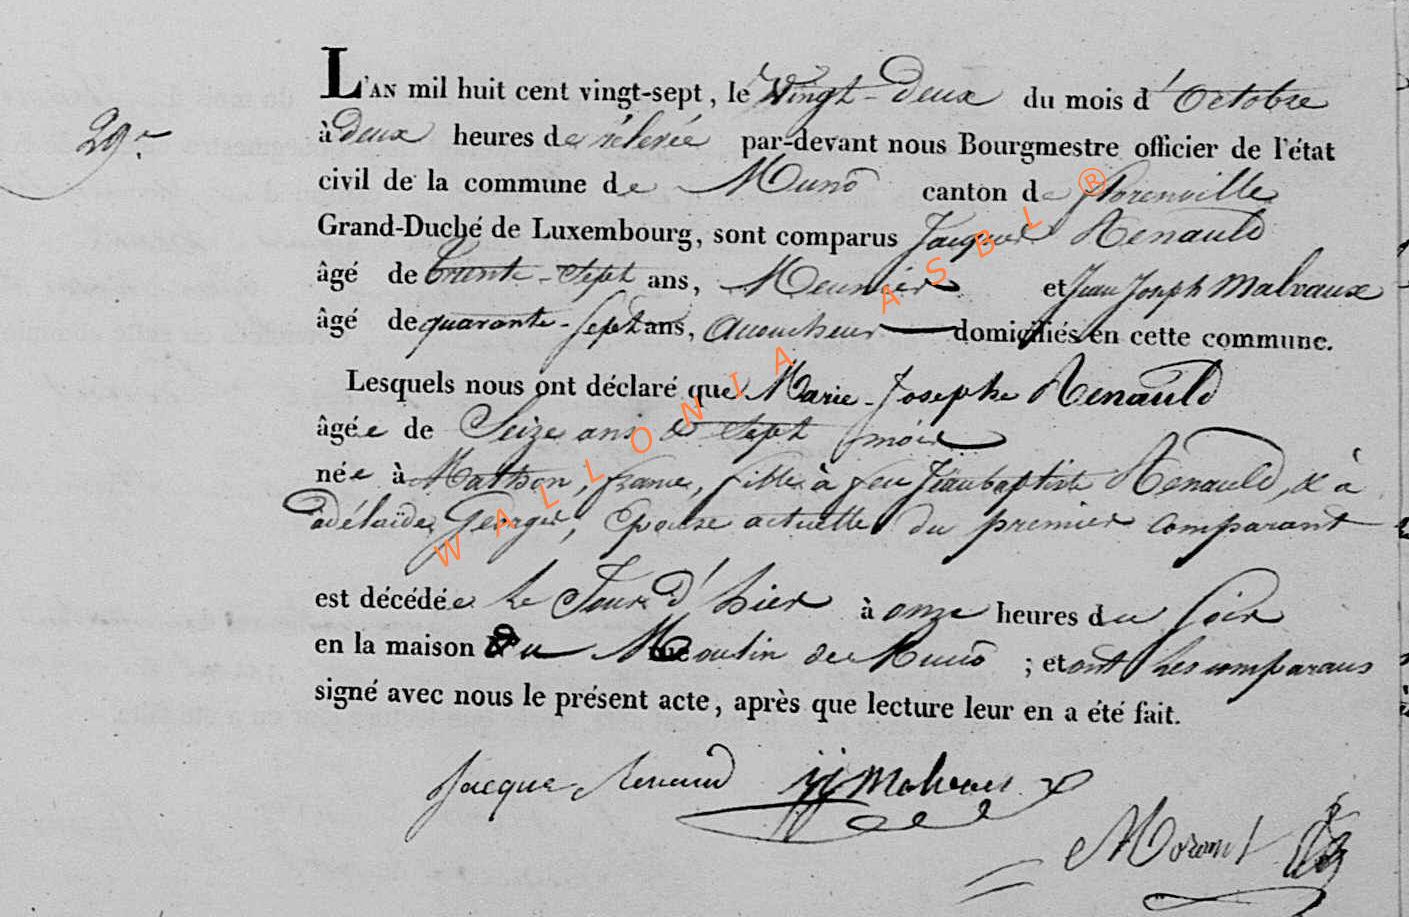 29.e
L'AN mil huit cent vingt-sept, le Vingt-deux du mois d'Octobre
à deux heures de relevée par-devant nous Bourgmestre officier de l'état
civil de la commune de Muno canton de Florenville
Grand-Duché de Luxembourg, sont comparus Jacques Renauld
âgé de trente-sept ans, Meunier et Jean Joseph Malvaux
âgé de quarante-sept ans, domiciliés en cette commune.
Lesquels nous ont déclaré que Marie-Josephe Renauld
âgée de Seize ans & sept mois
née à Mathon, france, fille à feu Jeanbaptiste Renauld, & à
adélaïde Georges, Epouse actuelle du premier comparant
est décédée le Jour d'hier à onze heures du soir
en la maison du Moulin de Muno ; et ont les comparans
signé avec nous le présent acte, après que lecture leur en a été fait.
Jacque Renaud JJ Malvaux
WALLONIA ASBL ®